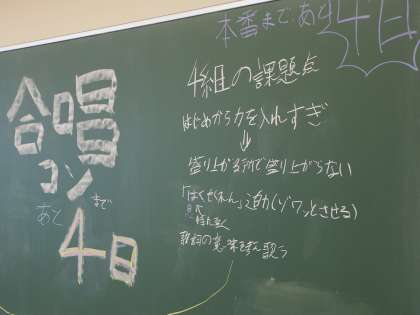 本番まであと4日
合唱
コン
まで
あと
4日
4組の課題点
はじめから力を入れすぎ
↓
盛り上がる所で盛り上がらない
迫力(ゾワッとさせる)
歌詞の意味を考え歌う